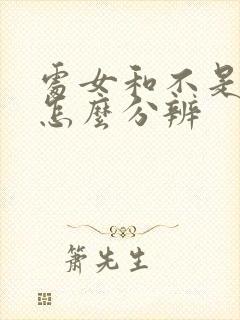 處女和不是
怎麼分辨
簫先生